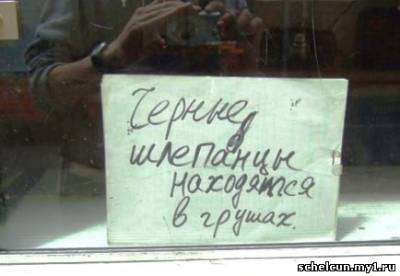 Черные
шлепанцы
находятся
в грушах.
schelcun.my1.ru